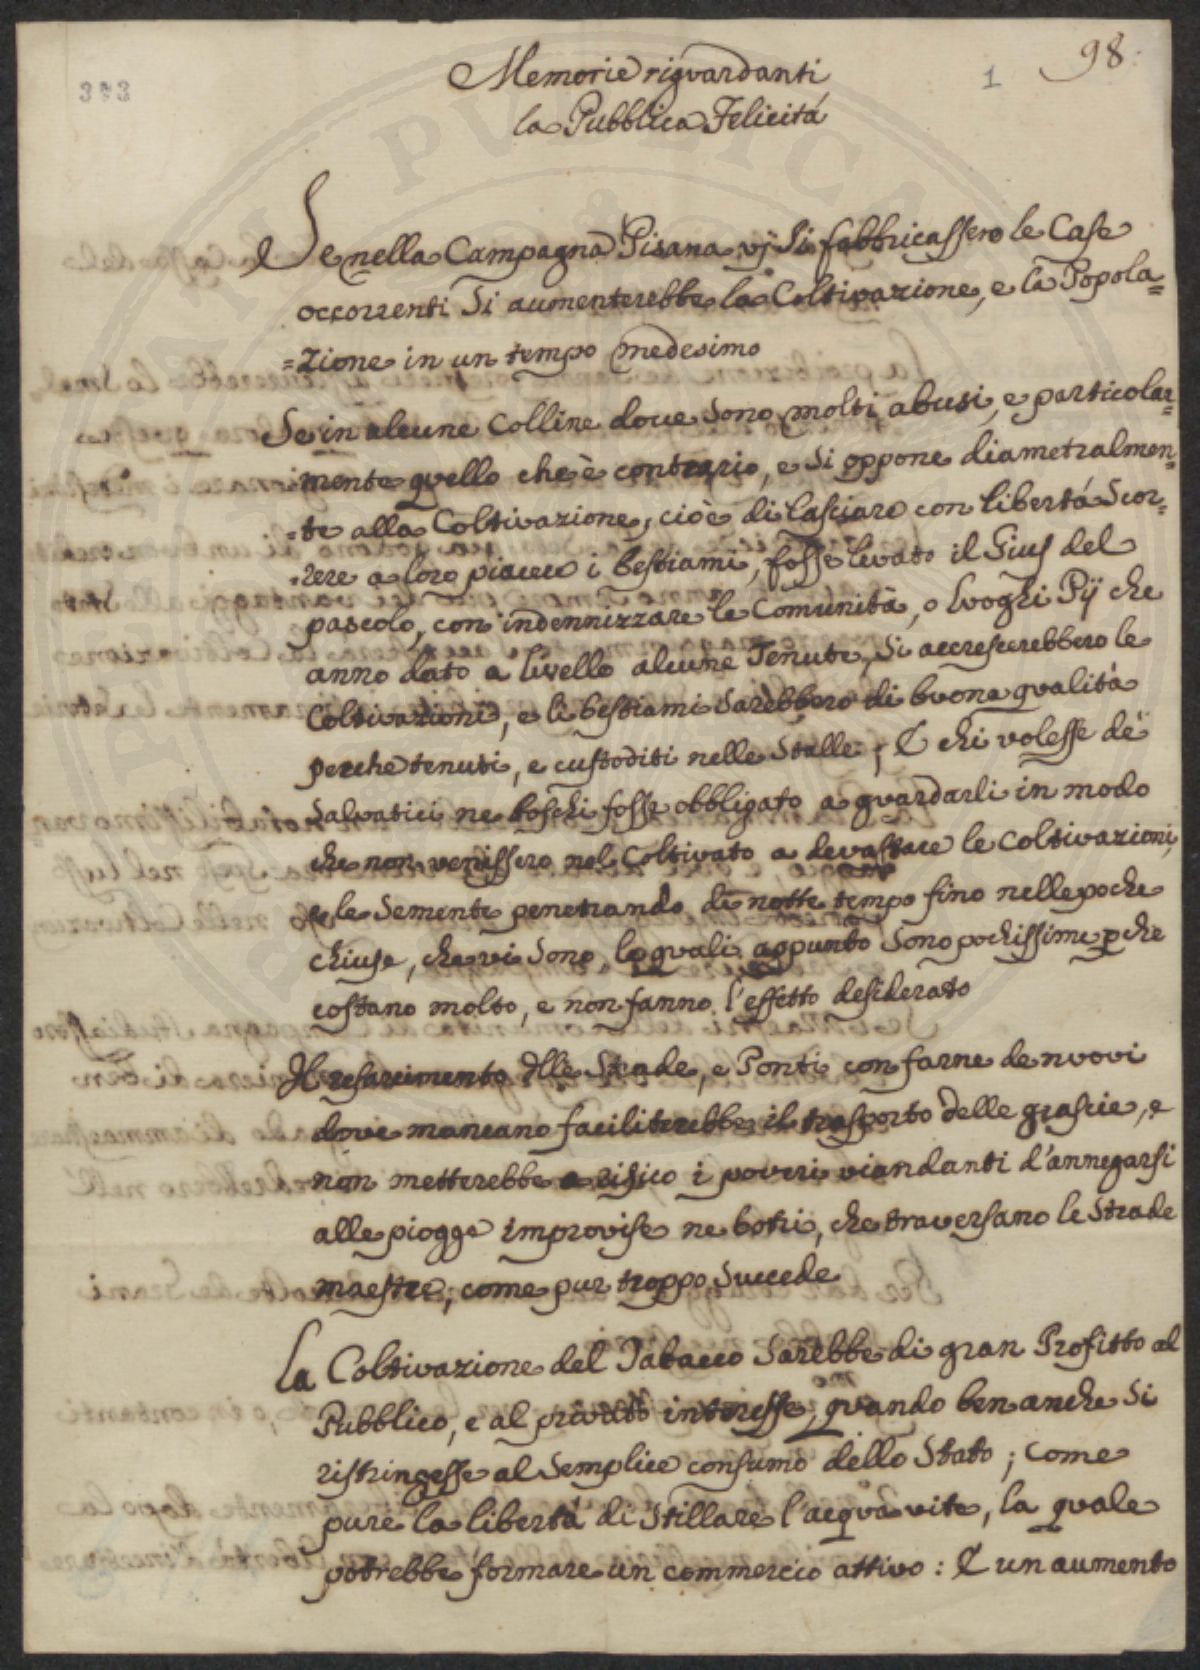 393
1
98.
Memorie riguardanti
la Pubblica Felicitá
Se nella Campagna Pisana vi si fabbricassero le Case
occorrenti si aumenterebbe la Coltivazione, e la Popola=
=zione in un tempo medesimo
Se in alcune Colline dove sono molti abusi, e particolar=
mente quello che è contrario, e si oppone diametralmen=
=te alla Coltivazione, cioè di lasciare con libertá scor=
=rere a loro piacere i bestiami, fosse levato il Gius del
pascolo, con indennizzare le Comunità, o Luoghi Pij che
anno dato a livello alcune Tenute, si accrescerebbero le
Coltivazioni, e li bestiami sarebbero di buona qualità
perche tenuti, e custoditi nelle Stalle; E chi volesse de
salvatici ne boschi fosse obbligato a guardarli in modo
che non venissero nel Coltivato a devastare le coltivazioni,
e le Semente penetrando di notte tempo fino nelle poche
chiuse, che vi sono, le quali appunto sono pochissime pche
costano molto, e non fanno l'effetto desiderato
Il resarcimento dlle Strade, e Ponti con farne de nuovi
dove mancano faciliterebbe il trasporto delle grascie, e
non metterebbe a risico i poveri viandanti d'annegarsi
alle piogge improvise ne botri, che traversano le strade
maestre, come pur troppo succede
La Coltivazione del Tabacco sarebbe di gran Profitto al
Pubblico, e al privato interesse, quando ben anche si
ristringesse al semplice consumo dello Stato; come
pure la libertá di stillare l'acqua vite, la quale
potrebbe formare un commercio attivo: E un aumento